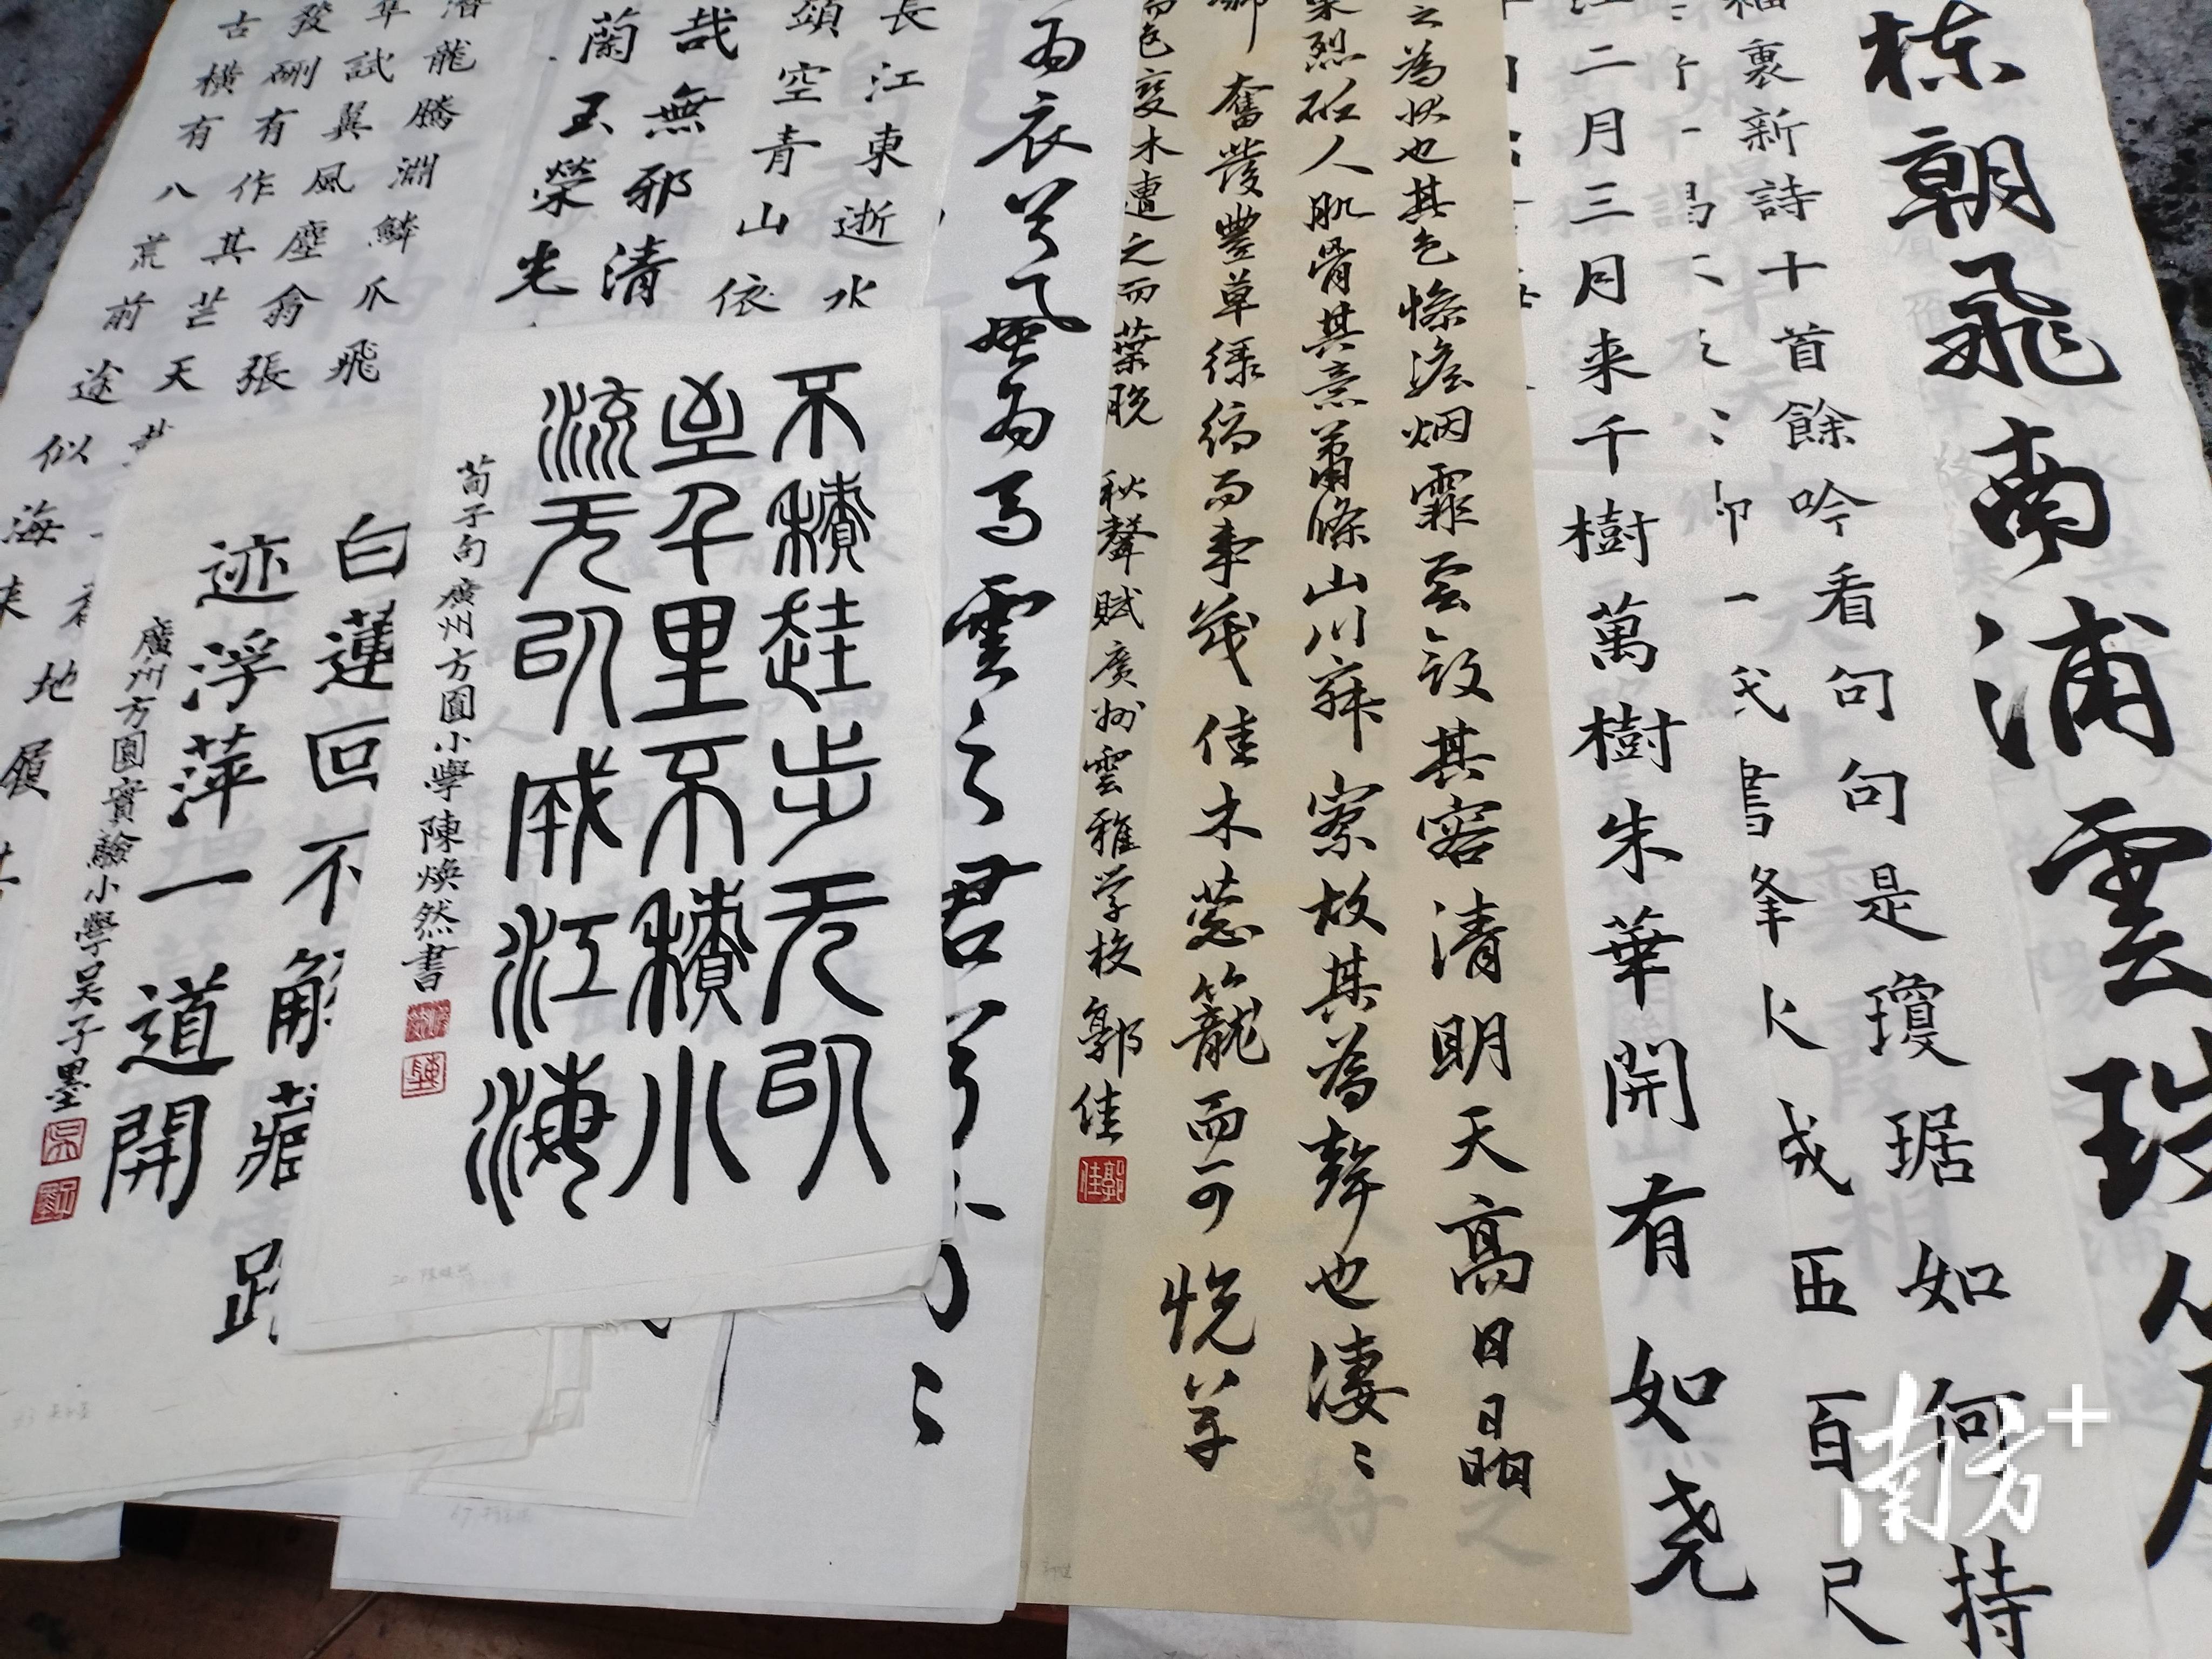 栋朝飛南浦雲珠
裏新詩十首餘吟看句句是瓊琚如何持
一
書
峯
火
成
百尺
二月三月来千樹萬樹朱華開有如尧
之為状也其色惨澹烟霏雲歛其容清明天高日晶
栗烈砭人肌骨其意蕭條山川寂寥故其為聲也凄〻
奮發豐草绿缛而争茂佳木葱籠而可悦草
色變木遭之而葉脱
秋聲賦廣州雲雅学校郭佳
郭佳
為衣兮風為馬雲之君兮
長江東逝水
頭空青山依
哉無邪清
蘭玉榮光
潜龍騰淵鱗爪飛
試翼風塵翕張
發硎有作其芒
古横有八荒前途似海来
天
地
履
不積跬步无以
至千里不積小
流无以成江海
荀子句廣州方圓小學陳焕然書
白蓮回不解藏
迹浮萍一道開
廣州方圓實驗小學吴子墨
南方+